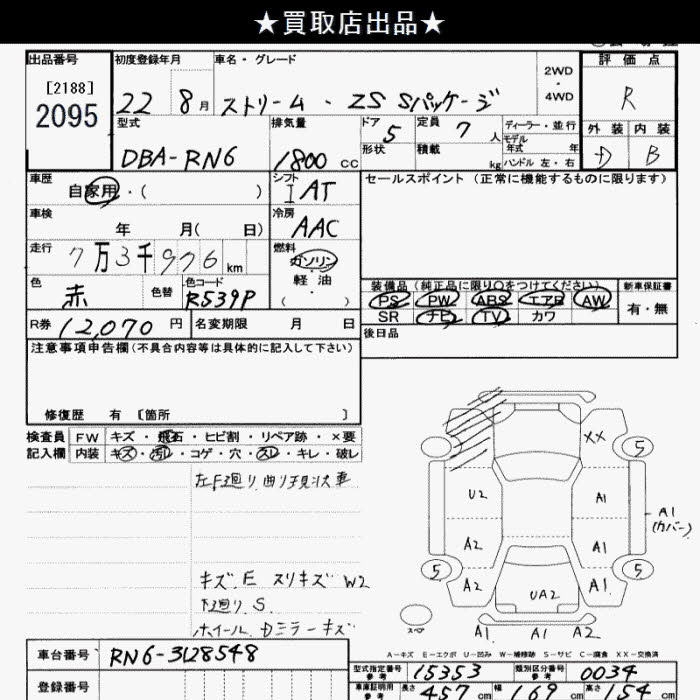 ★買取店出品★
出品番号 初度登録年月 車名・グレード 評価点
[2188]
2095
22 8月 ストリーム・ZS Sパッケージ
2WD
・
4WD
R
型式 排気量 ドア 定員 ディーラー・並行
DBA-RN6 1800 cc 5 7人
モデル年式 年
形状 積載 kg ハンドル 左・右
外装 内装
D B
車歴 自家用・( )
シフト I AT
セールスポイント(正常に機能するものに限ります)
車検 年 月( 日)
冷房 AAC
走行 7万3千976km
燃料 ガソリン
軽油
・
( )
色 赤 色替 色コード R539P
装備品(純正品に限り○をつけてください) 新車保証書
PS PW ABS エアB AW 有・無
SR ナビ TV カワ
R券 12,070円 名変期限 月 日
後日品
注意事項申告欄(不具合内容等は具体的に記入して下さい)
修復歴 有 〔箇所 〕
検査員 FW キズ・飛石・ヒビ割・リペア跡・×要
記入欄 内装 キズ・汚れ・コゲ・穴・スレ・キレ・破レ
左F廻り曲り現状車
キズ.E スリキズ W2
下廻り S.
ホイール.Dミラーキズ
XX 5
U2 A1
A1
(カバー)
A2 A1
5 A2 A1 5
UA2
スペア A1 A1 A2
A-キズ E-エクボ U-凹み W-補修跡 S-サビ C-腐食 XX-交換済
車台番号 RN6-3128548
型式指定番号 参考 15353 類別区分番号 参考 0034
登録番号
車庫証明用 参考 長さ 457cm 幅 169cm 高さ 154cm